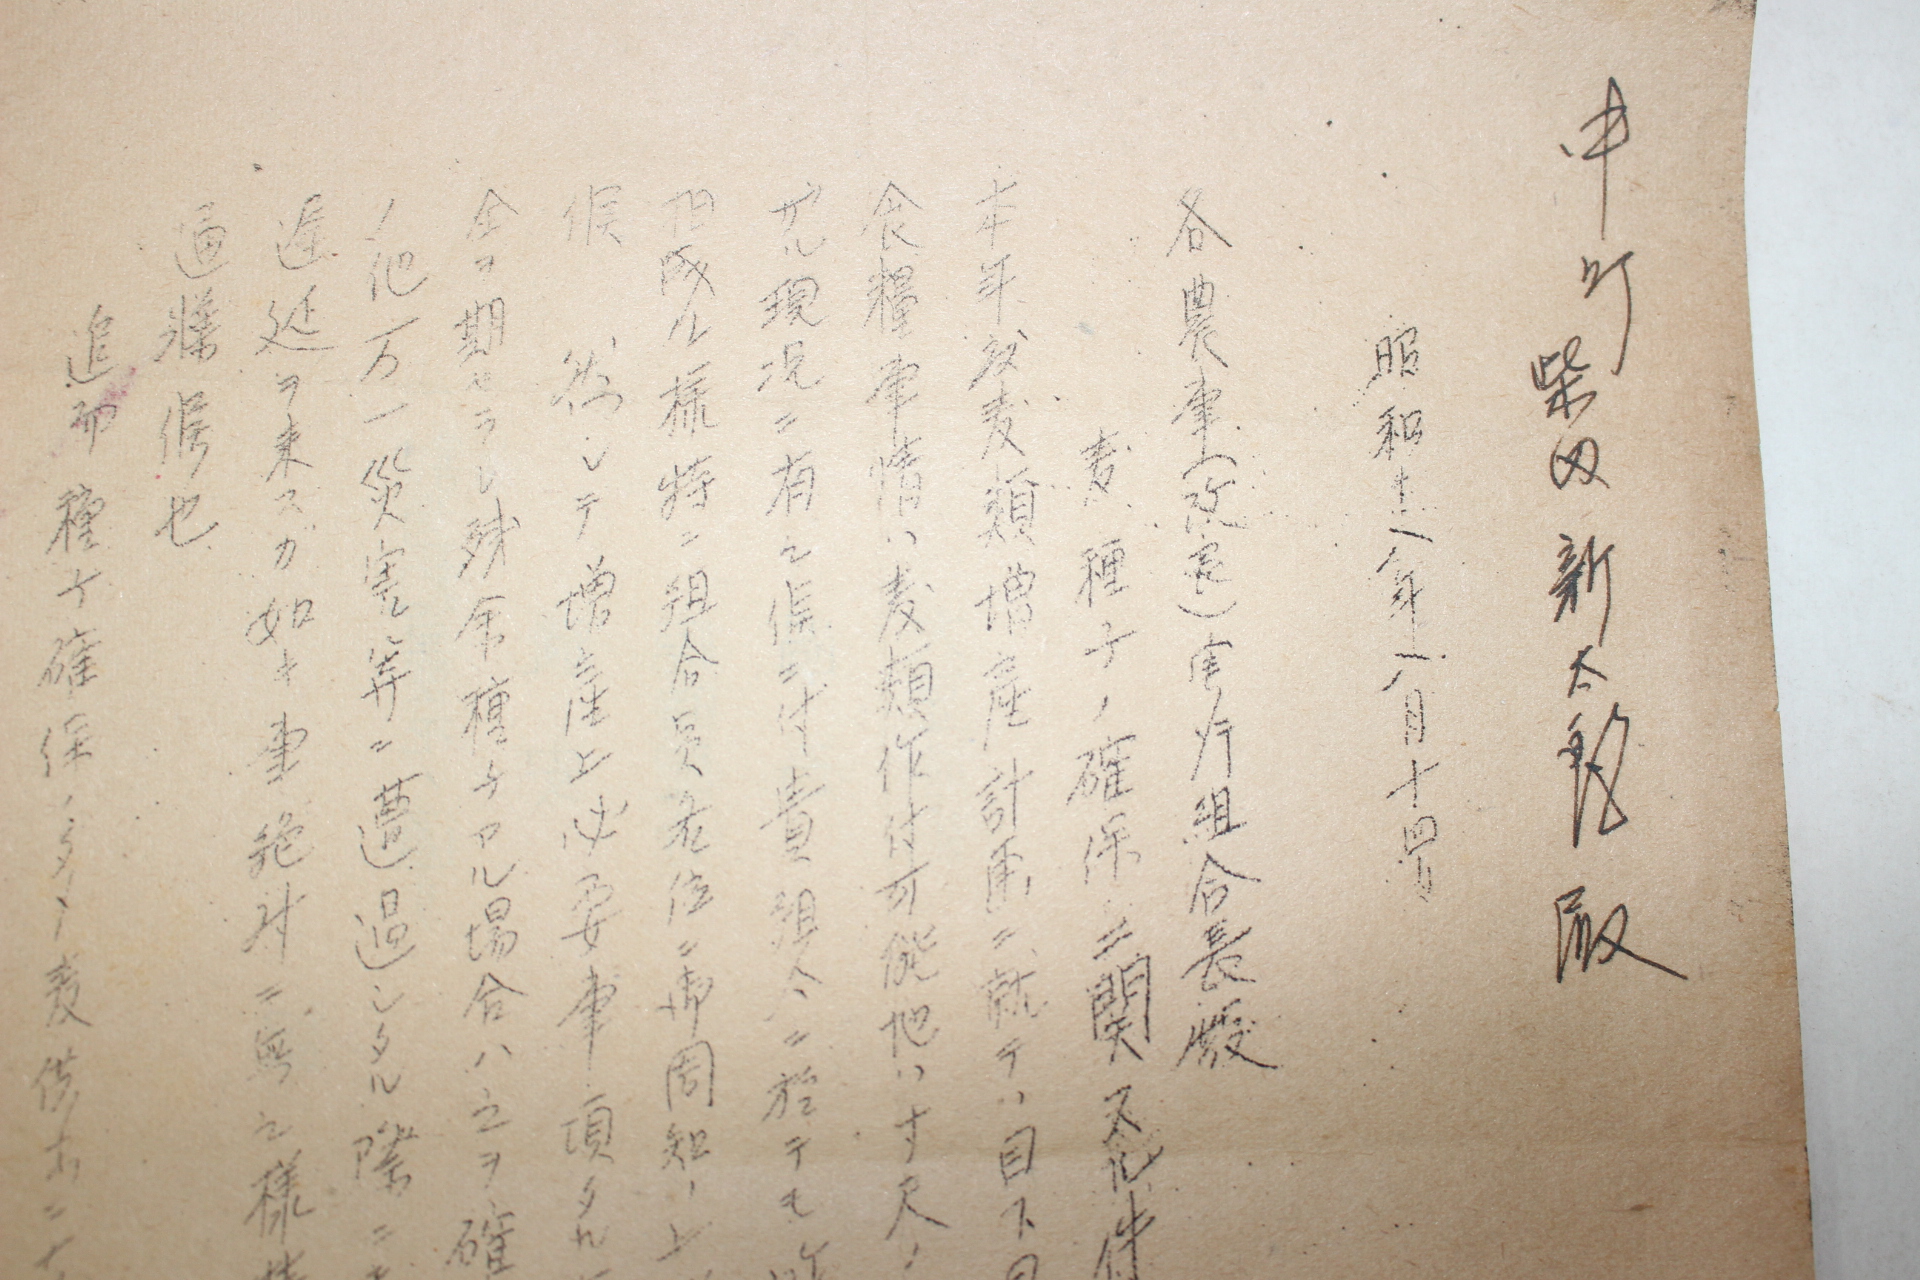 中町 柴田新太郎殿
昭和十一年一月十四日
各農事(改良)実行組合長殿
麦種子ノ確保ニ関スル件
本年度麦類増産計画ニ就テハ目下
食糧事情ハ麦類作付可能地ハ寸尺ノ
現況ニ有之候ニ付貴組合ニ於テモ
相成ル様特ニ組合員各位ニ御周知ノ上
候 然シテ増産上必要事項タル
全ヲ期セラレ残余種子アル場合ハ之ヲ確
ノ他万一災害等ニ遭遇シタル際ニ
遅延ヲ来スガ如キ事絶対ニ無之様
通牒候也
追而種子確保ノタメノ麦供出ニ